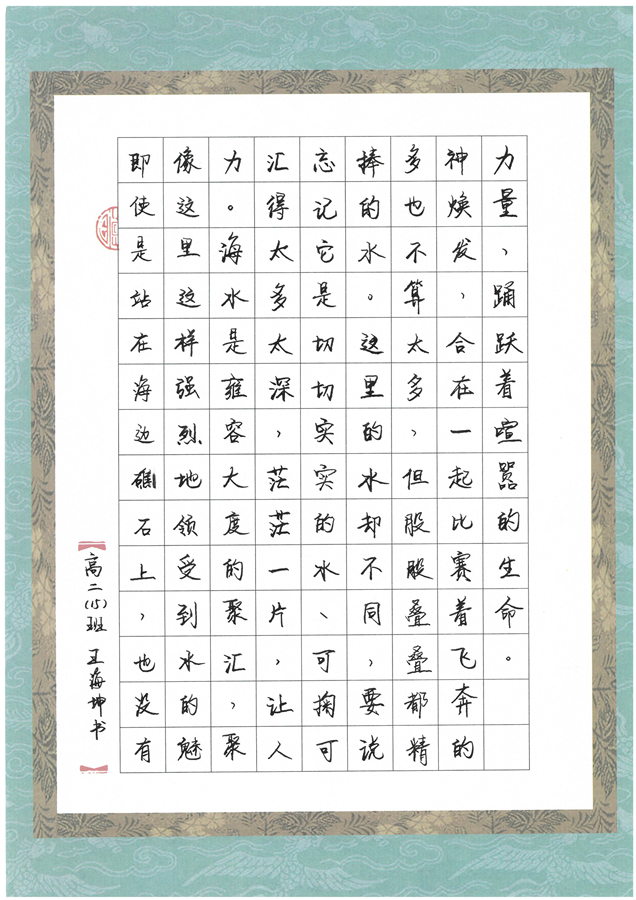 即使是站在海边礁石上，也没有
像这里这样强烈地领受到水的魅
力。海水是雍容大度的聚汇，聚
汇得太多太深，茫茫一片，让人
忘记它是切切实实的水、可掬可
捧的水。这里的水却不同，要说
多也不算太多，但股股叠叠都精
神焕发，合在一起比赛着飞奔的
力量，踊跃着喧嚣的生命。
高二(15)班 王海坤书